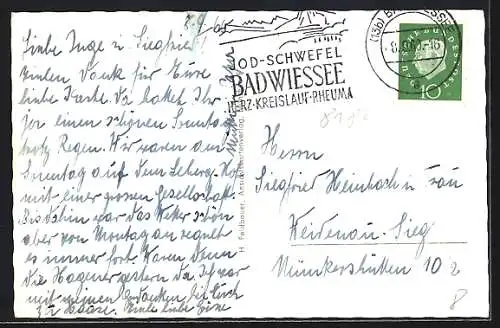 7.9.60
Liebe Inge u. Siegfried!
Vielen Dank für Eure
liebe Karte. Da habt Ihr
ja einen schönen Sonntag
trotz Regen. Wir waren am
Sonntag auf dem
mit einer grossen Gesellschaft.
Bis dahin war das Wetter schön
aber von Montag an regnet
es immer fort. Wann denn
die Hagener gestern da. Ich war
mit meinen Gedanken bei Euch
zu Hause. Viele liebe Grüße
JOD-SCHWEFEL
BAD WIESSEE
HERZ·KREISLAUF·RHEUMA
(13b) BAD WIESSEE
-8.9.60.-16
DEUTSCHE BUNDESPOST
10
H. Feldbauer, Ansichtskartenverlag,
Herrn
Siegfried Heimbach u. Frau
Weidenau-Sieg
10
8